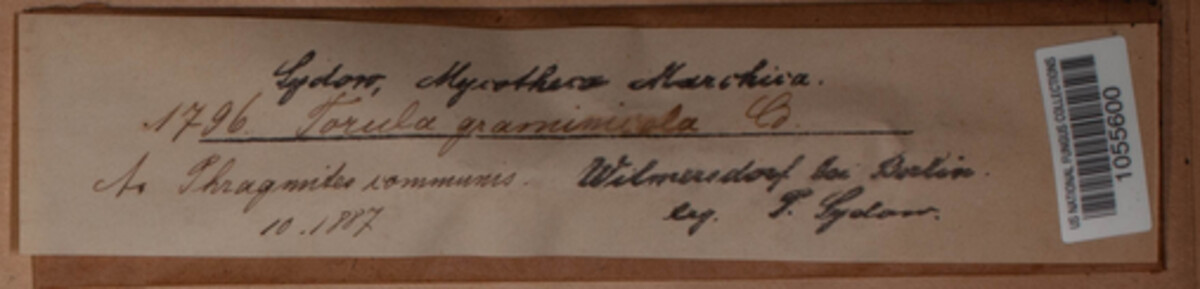 Sydow, Mycotheca Marchica.
1796. Torula graminicola Cd.
A. Phragmites communis. Wilmersdorf bei Berlin.
10.1887 leg. P. Sydow.
US NATIONAL FUNGUS COLLECTIONS
1055600